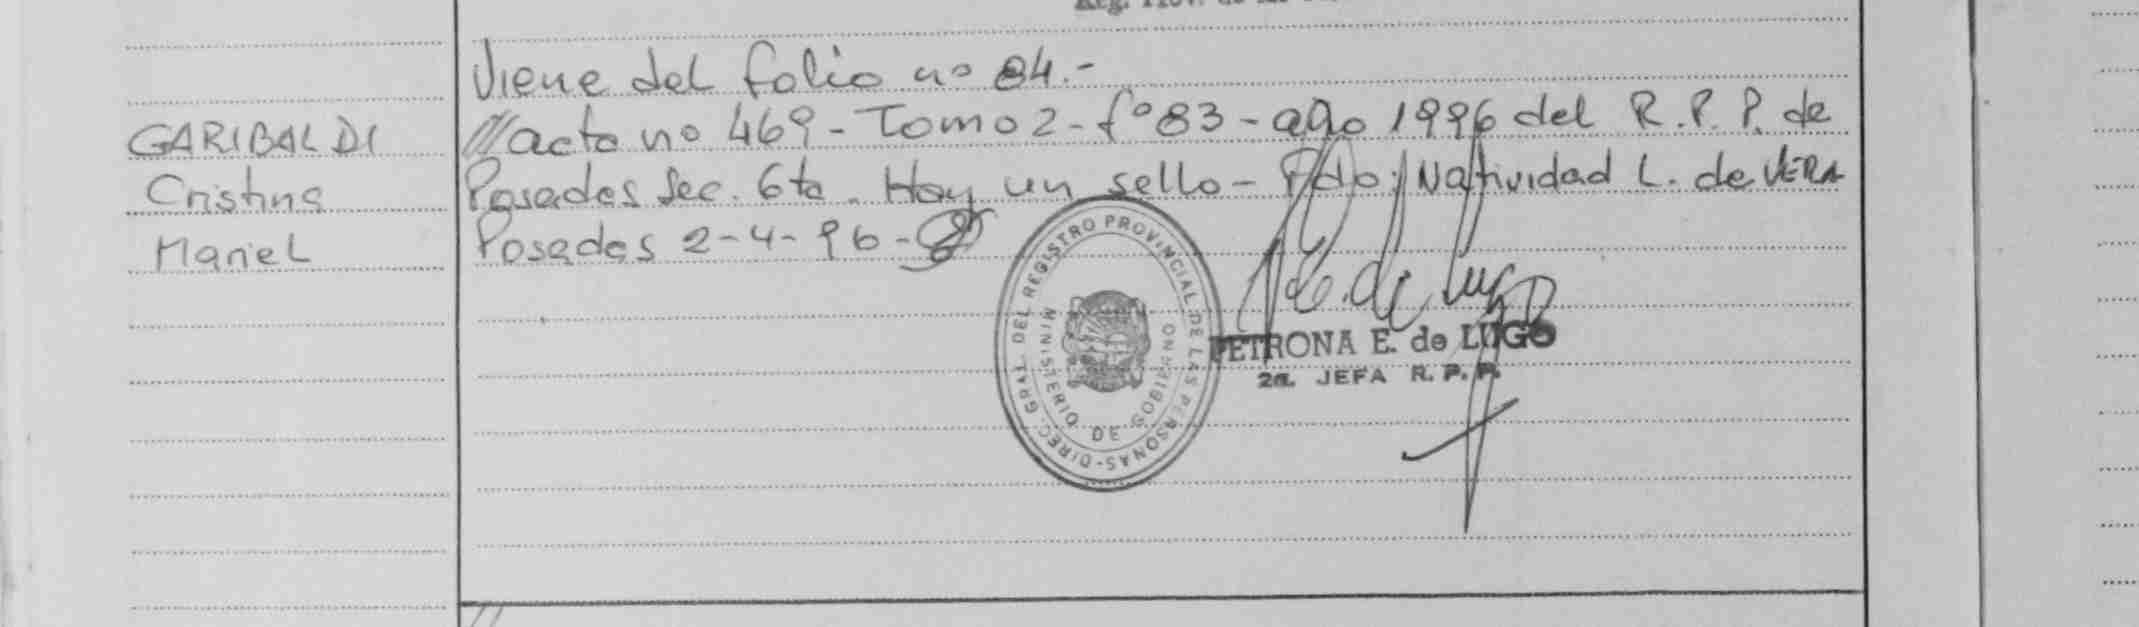 GARIBALDI
Cristina
Mariel
Viene del folio nº 84.-
//acta nº 469 - Tomo 2 - fº 83 - año 1996 del R.P.P. de
Posadas Sec. 6ta. Hay un sello - Fdo: Natividad L. de VERA
Posadas 2-4-96-
DIREC. GRAL. DEL REGISTRO PROVINCIAL DE LAS PERSONAS-
MINISTERIO DE GOBIERNO
PETRONA E. de LUGO
2a. JEFA R.P.P.